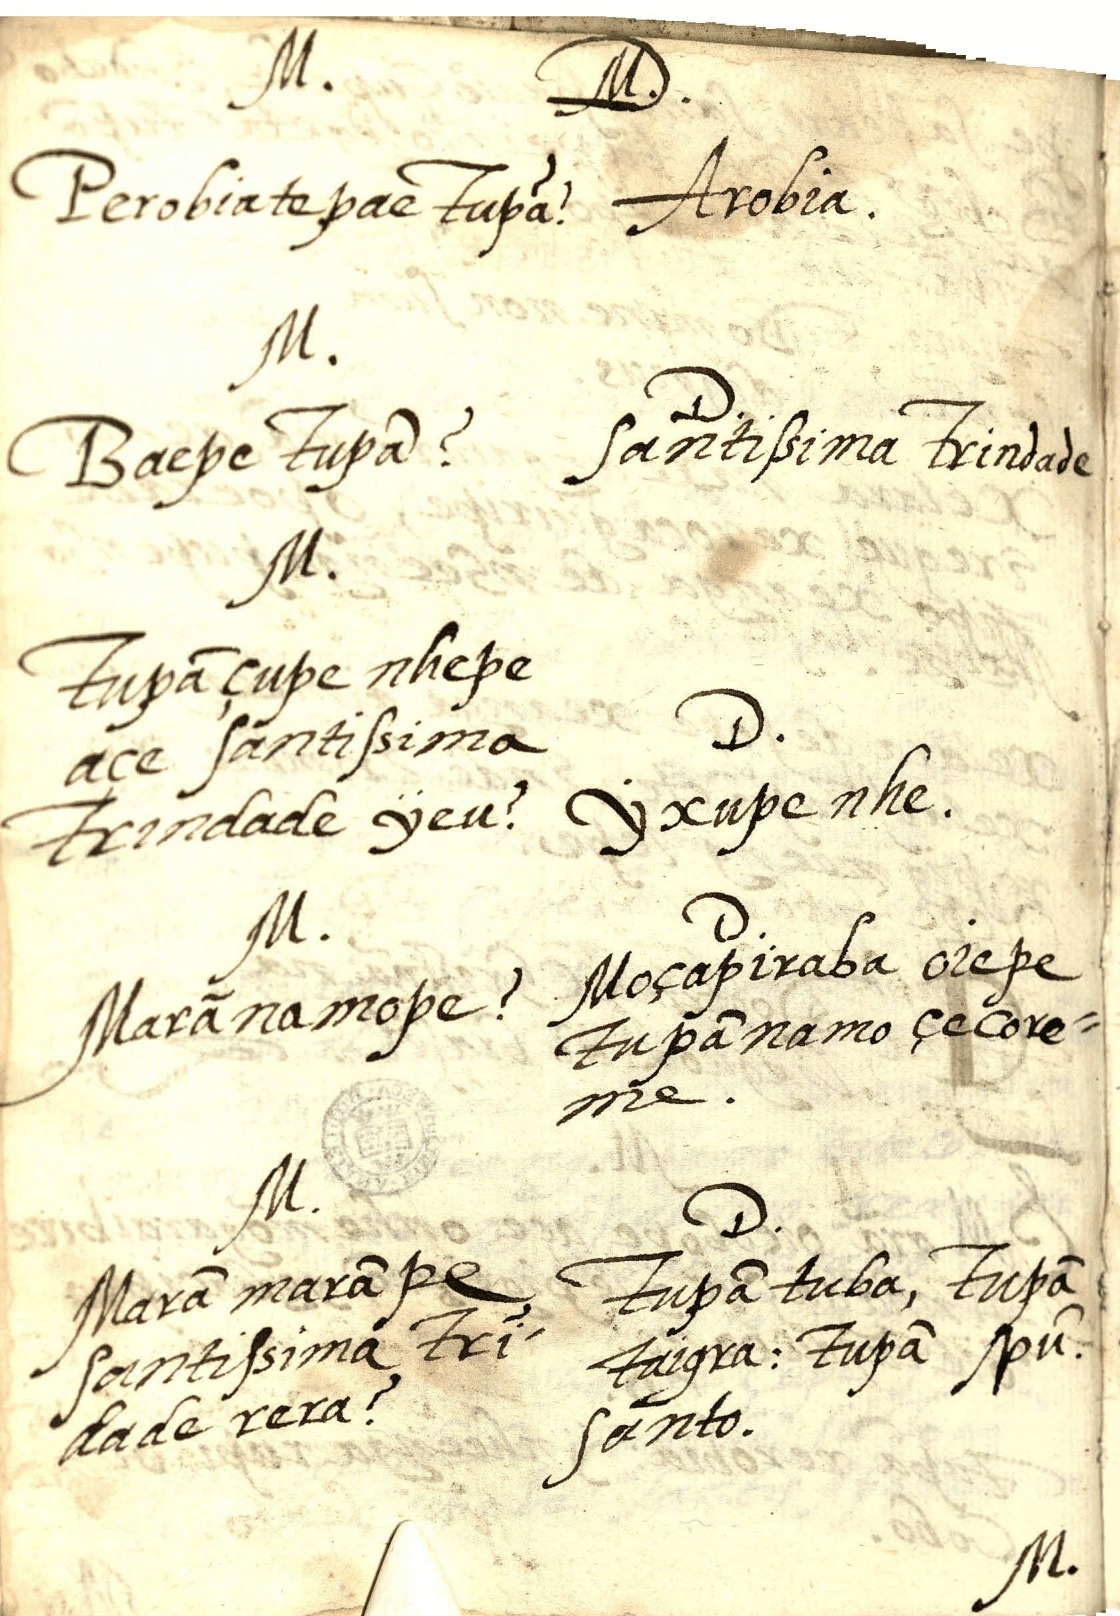 M.
D.
Perobiatepae Tupã?
Arobia.
M.
Baepe Tupã?
D.
Santissima Trindade
M.
Tupã çupe nhepe
açe Santissima
Trindade ÿeu?
D.
Ÿxupe nhe.
M.
Marãnamope?
D.
Moçapiraba oiepe
Tupãnamo çecore=
me.
M.
Marã marãpe
Santissima Tri-
dade rera?
D.
Tupã tuba, Tupã
taigra: Tupã spũ.
Santo.
M.